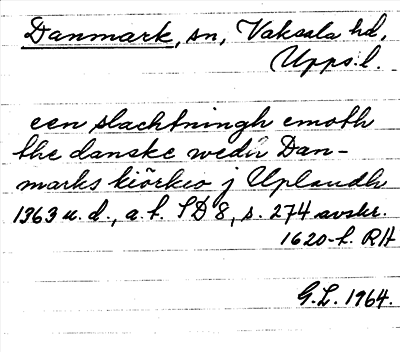 Danmark, sn, Vaksala hd,
Upps.l.
een slachtningh emoth
the danske wedh Dan-
marks kiörkio j Uplandh
1363 u. d., a. f. SD 8, s. 274 avskr.
1620-t. RH
G.L. 1964.